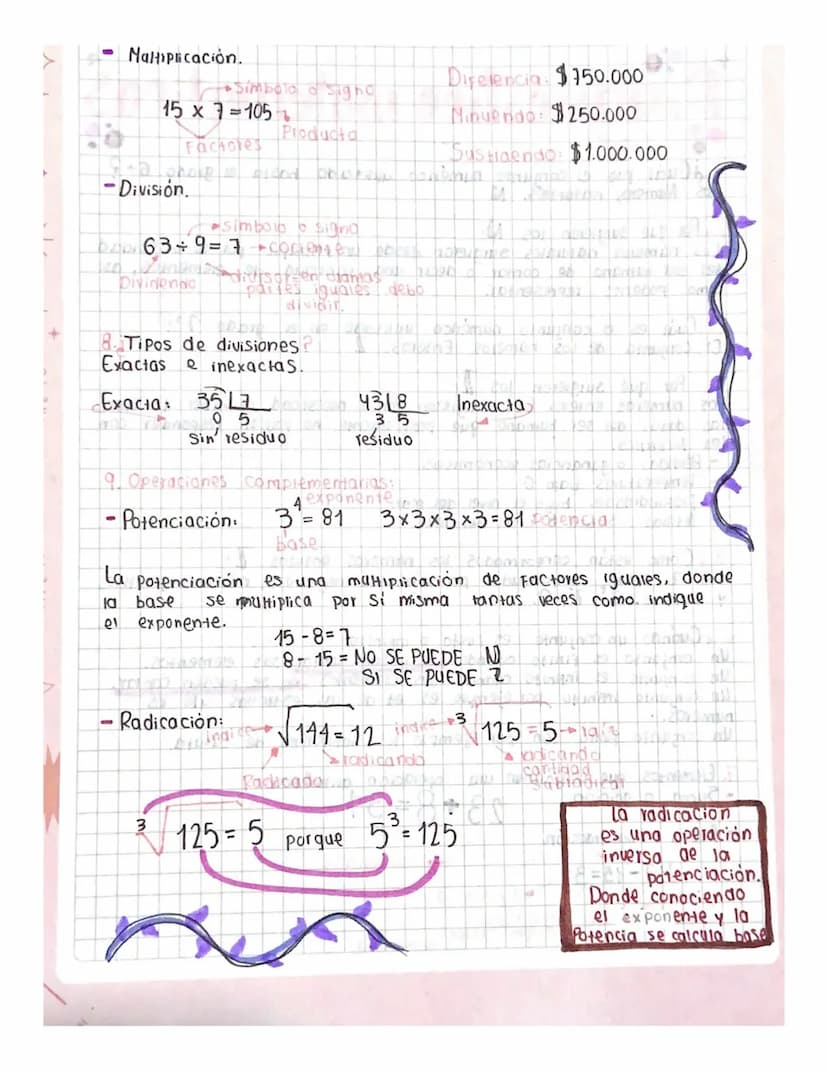 - Multiplicación.
símbolo o signo
15 x 7 = 105
Producto
Factores
Diferencia: $750.000
Minuendo: $250.000
Sustraendo: $1.000.000
- División.
símbolo o signo
63 ÷ 9 = 7 → cociente
Dividendo
divisor en cuantas
partes iguales debo
dividir.
8. ¿Tipos de divisiones?
Exactas e inexactas.
Exacta: 35 | 7
0 5
sin residuo
43 | 8 Inexacta
3 5
residuo
9. Operaciones complementarias:
exponente
- Potenciación: 3⁴ = 81 3x3x3x3=81 potencia
base
La potenciación es una multiplicación de Factores iguales, donde
la base se multiplica por sí misma tantas veces como indique
el exponente.
15 - 8 = 7
8 - 15 = NO SE PUEDE N
SI SE PUEDE Z
- Radicación:
indice → √144 = 12
radicando
Radicado
indice → ³√125 = 5 → raíz
radicando
cantidad
subradical
³√125 = 5 porque 5³ = 125
La radicacion
es una operación
inversa de la
potenciación.
Donde conociendo
el exponente y la
Potencia se calcula base